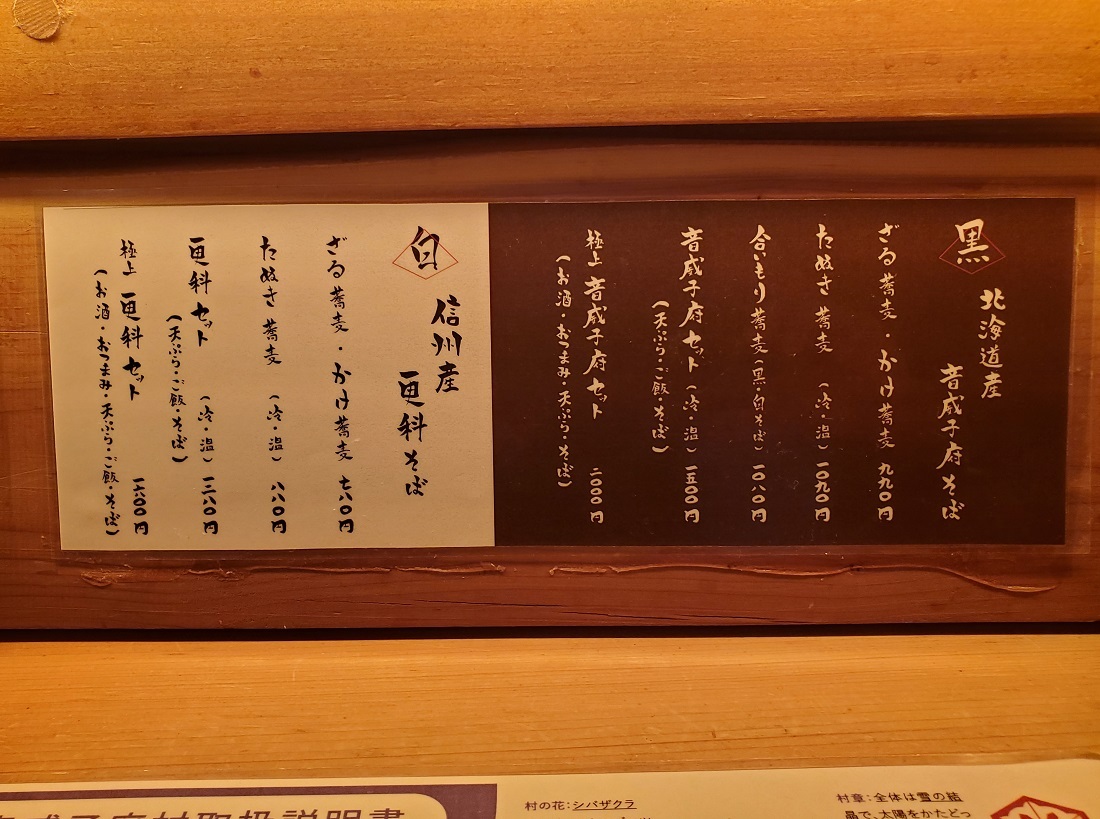 黒
北海道産
音威子府そば
ざる蕎麦・かけ蕎麦 九九〇円
たぬき蕎麦 (冷・温) 一〇九〇円
合いもり蕎麦(黒・白そば) 一〇八〇円
音威子府セット (冷・温) 一五〇〇円
(天ぷら・ご飯・そば)
極上 音威子府セット 二〇〇〇円
(お酒・おつまみ・天ぷら・そば)
白
信州産
更科そば
ざる蕎麦・かけ蕎麦 七八〇円
たぬき蕎麦 (冷・温) 八八〇円
更科セット (冷・温) 一三八〇円
(天ぷら・ご飯・そば)
極上 更科セット 一八〇〇円
(お酒・おつまみ・天ぷら・ご飯・そば)
村取扱説明書
村の花：シバザクラ
村章：全体は雪の結
晶で、太陽をかたどっ